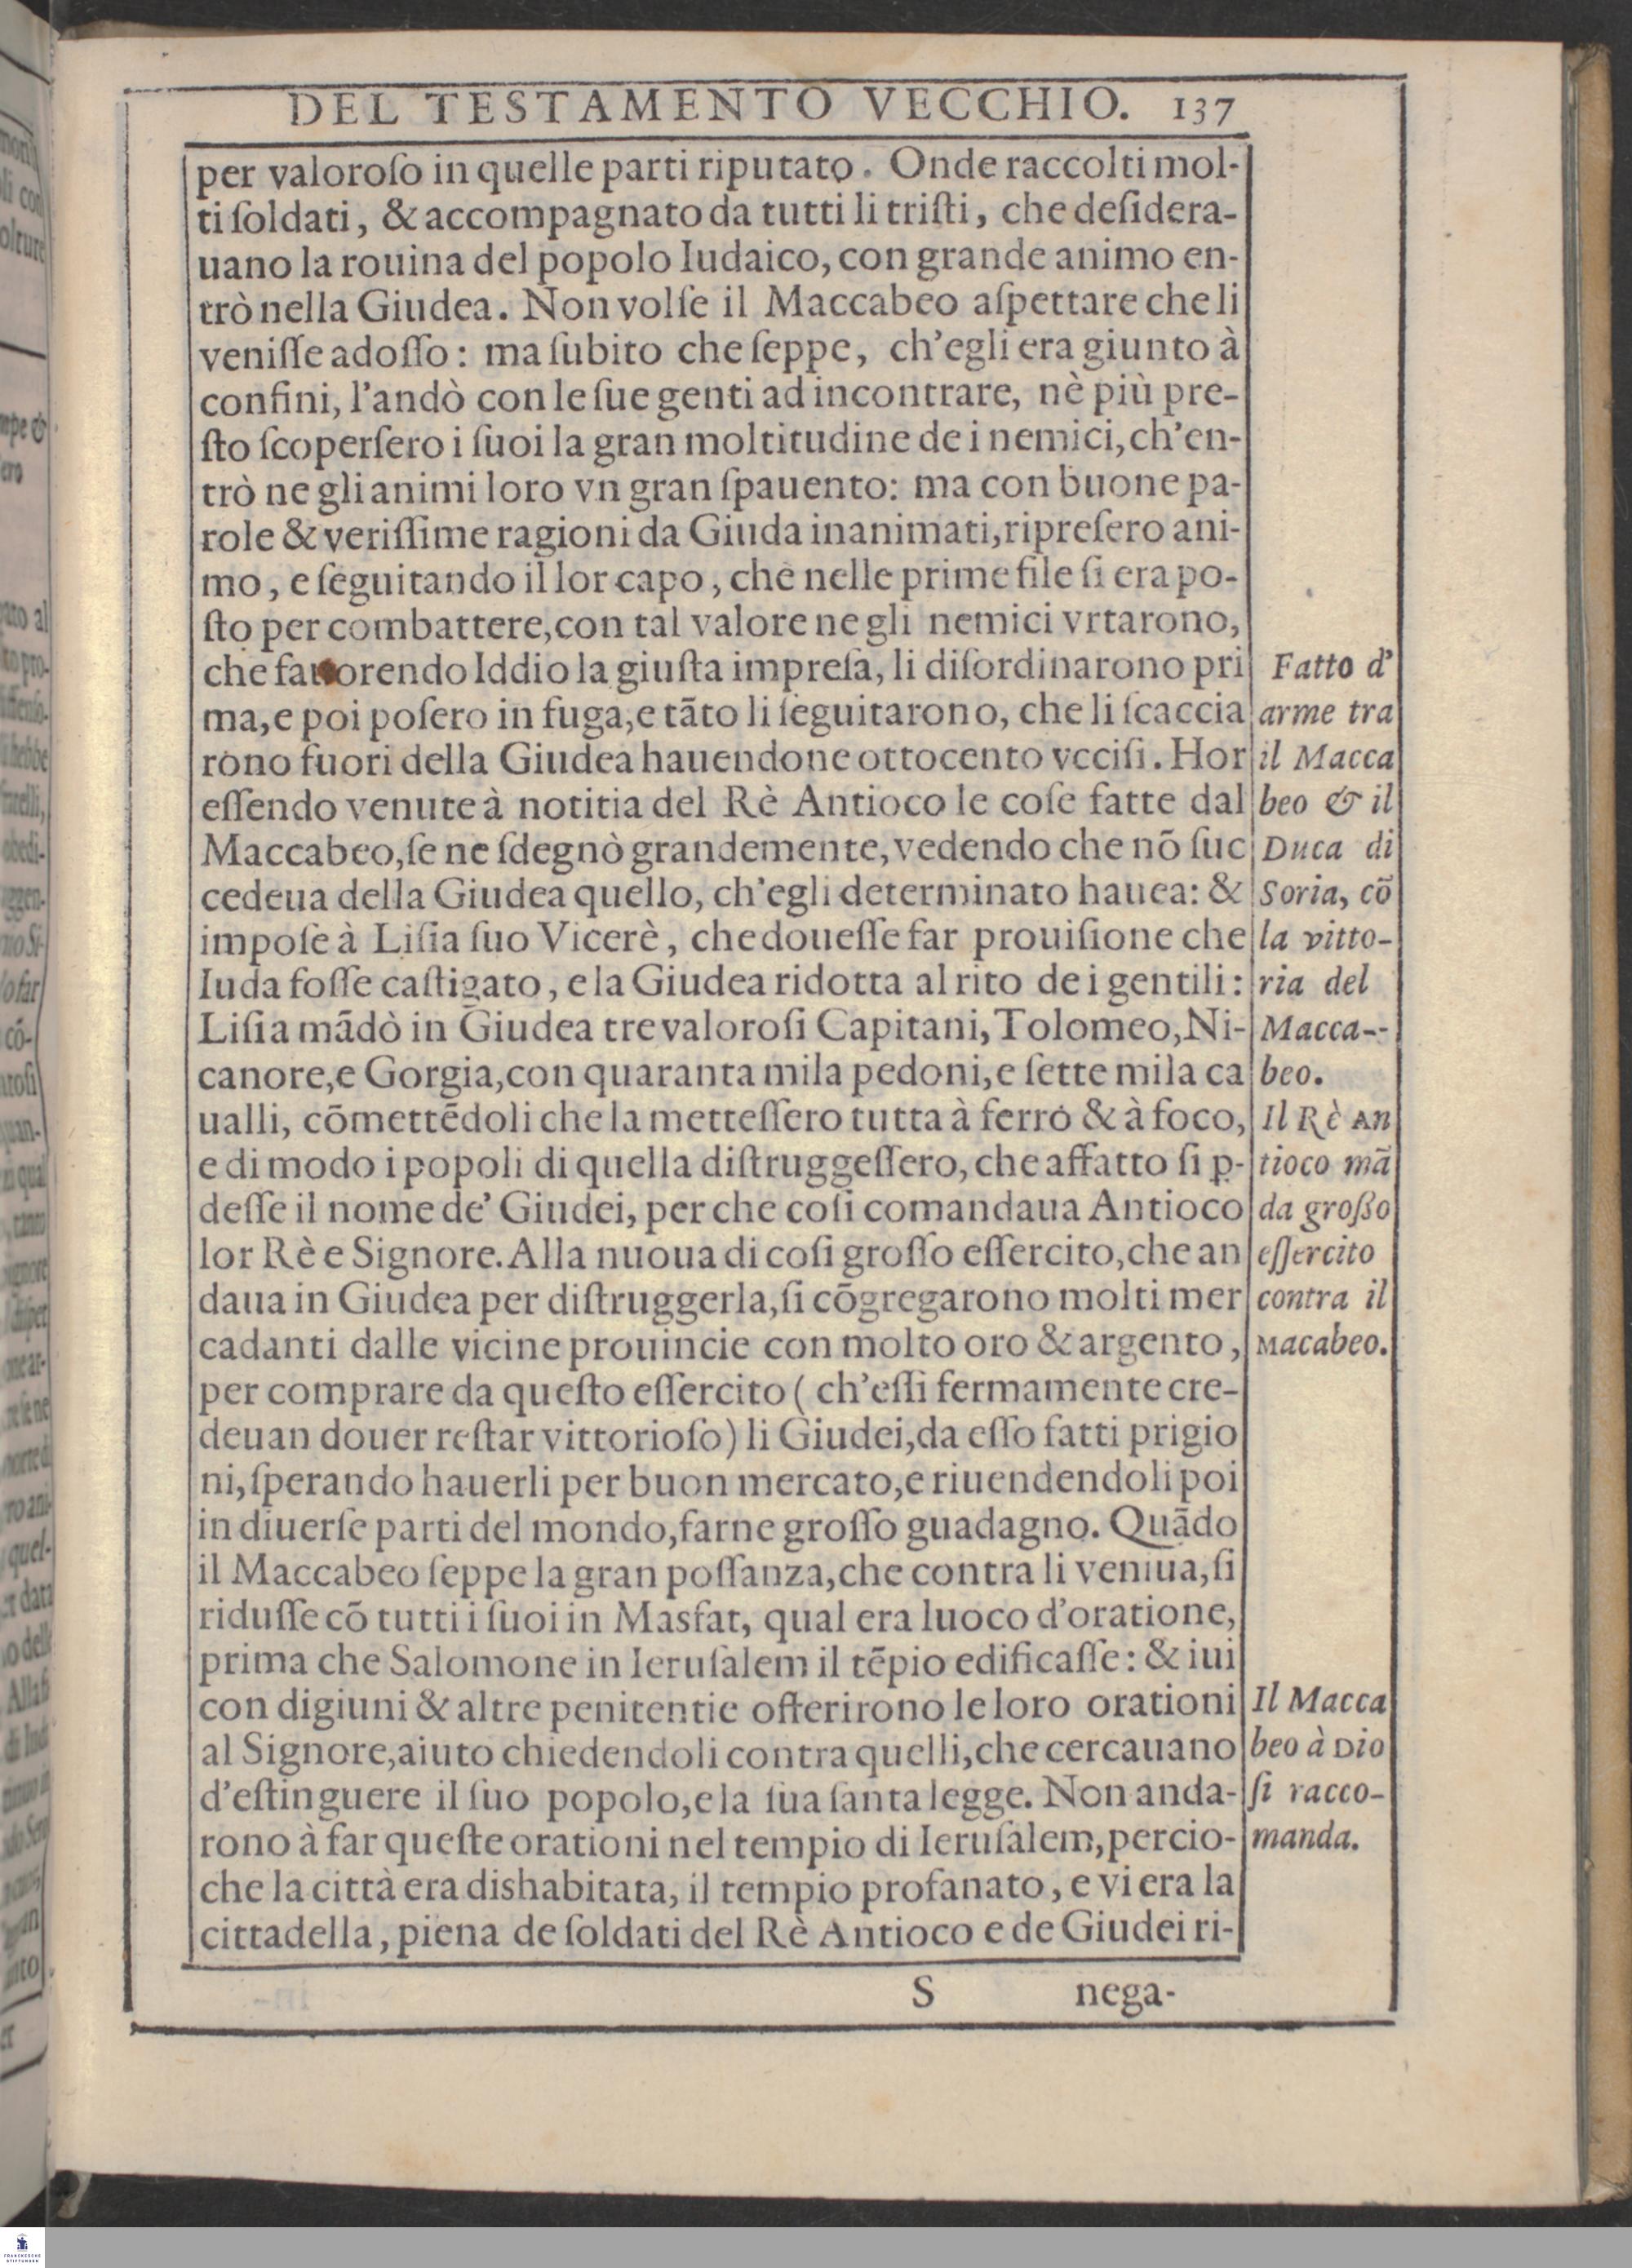 DEL TESTAMENTO VECCHIO. 137
per valoroſo in quelle parti riputato. Onde raccolti mol-
ti ſoldati, & accompagnato da tutti li triſti, che deſidera-
uano la rouina del popolo Iudaico, con grande animo en-
trò nella Giudea. Non volſe il Maccabeo aſpettare che li
veniſſe adoſſo: ma ſubito che ſeppe, ch'egli era giunto à
confini, l'andò con le ſue genti ad incontrare, nè più pre-
ſto ſcoperſero i ſuoi la gran moltitudine de i nemici, ch'en-
trò ne gli animi loro vn gran ſpauento: ma con buone pa-
role & veriſſime ragioni da Giuda inanimati, ripreſero ani-
mo, e ſeguitando il lor capo, che nelle prime file ſi era po-
ſto per combattere, con tal valore ne gli nemici vrtarono,
che fauorendo Iddio la giuſta impreſa, li diſordinarono pri
ma, e poi poſero in fuga, e tāto li ſeguitarono, che li ſcaccia
rono fuori della Giudea hauendone ottocento vcciſi. Hor
eſſendo venute à notitia del Rè Antioco le coſe fatte dal
Maccabeo, ſe ne ſdegnò grandemente, vedendo che nō ſuc
cedeua della Giudea quello, ch'egli determinato hauea: &
impoſe à Liſia ſuo Vicerè, che doueſſe far prouiſione che
Iuda foſſe caſtigato, e la Giudea ridotta al rito de i gentili:
Liſia mādò in Giudea tre valoroſi Capitani, Tolomeo, Ni-
canore, e Gorgia, con quaranta mila pedoni, e ſette mila ca
ualli, cōmettēdoli che la metteſſero tutta à ferro & à foco,
e di modo i popoli di quella diſtruggeſſero, che affatto ſi ꝑ-
deſſe il nome de' Giudei, per che coſi comandaua Antioco
lor Rè e Signore. Alla nuoua di coſi groſſo eſſercito, che an
daua in Giudea per diſtruggerla, ſi cōgregarono molti mer
cadanti dalle vicine prouincie con molto oro & argento,
per comprare da queſto eſſercito ( ch'eſſi fermamente cre-
deuan douer reſtar vittorioſo) li Giudei, da eſſo fatti prigio
ni, ſperando hauerli per buon mercato, e riuendendoli poi
in diuerſe parti del mondo, farne groſſo guadagno. Quādo
il Maccabeo ſeppe la gran poſſanza, che contra li veniua, ſi
riduſſe cō tutti i ſuoi in Masfat, qual era luoco d'oratione,
prima che Salomone in Ieruſalem il tēpio edificaſſe: & iui
con digiuni & altre penitentie offerirono le loro orationi
al Signore, aiuto chiedendoli contra quelli, che cercauano
d'eſtinguere il ſuo popolo, e la ſua ſanta legge. Non anda-
rono à far queſte orationi nel tempio di Ieruſalem, percio-
che la città era dishabitata, il tempio profanato, e vi era la
cittadella, piena de ſoldati del Rè Antioco e de Giudei ri-
S nega-
Fatto d'
arme tra
il Macca
beo & il
Duca di
Soria, cō
la vitto-
ria del
Macca-
beo.
Il Rè An
tioco mā
da groſſo
eſſercito
contra il
Macabeo.
Il Macca
beo à Dio
ſi racco-
manda.